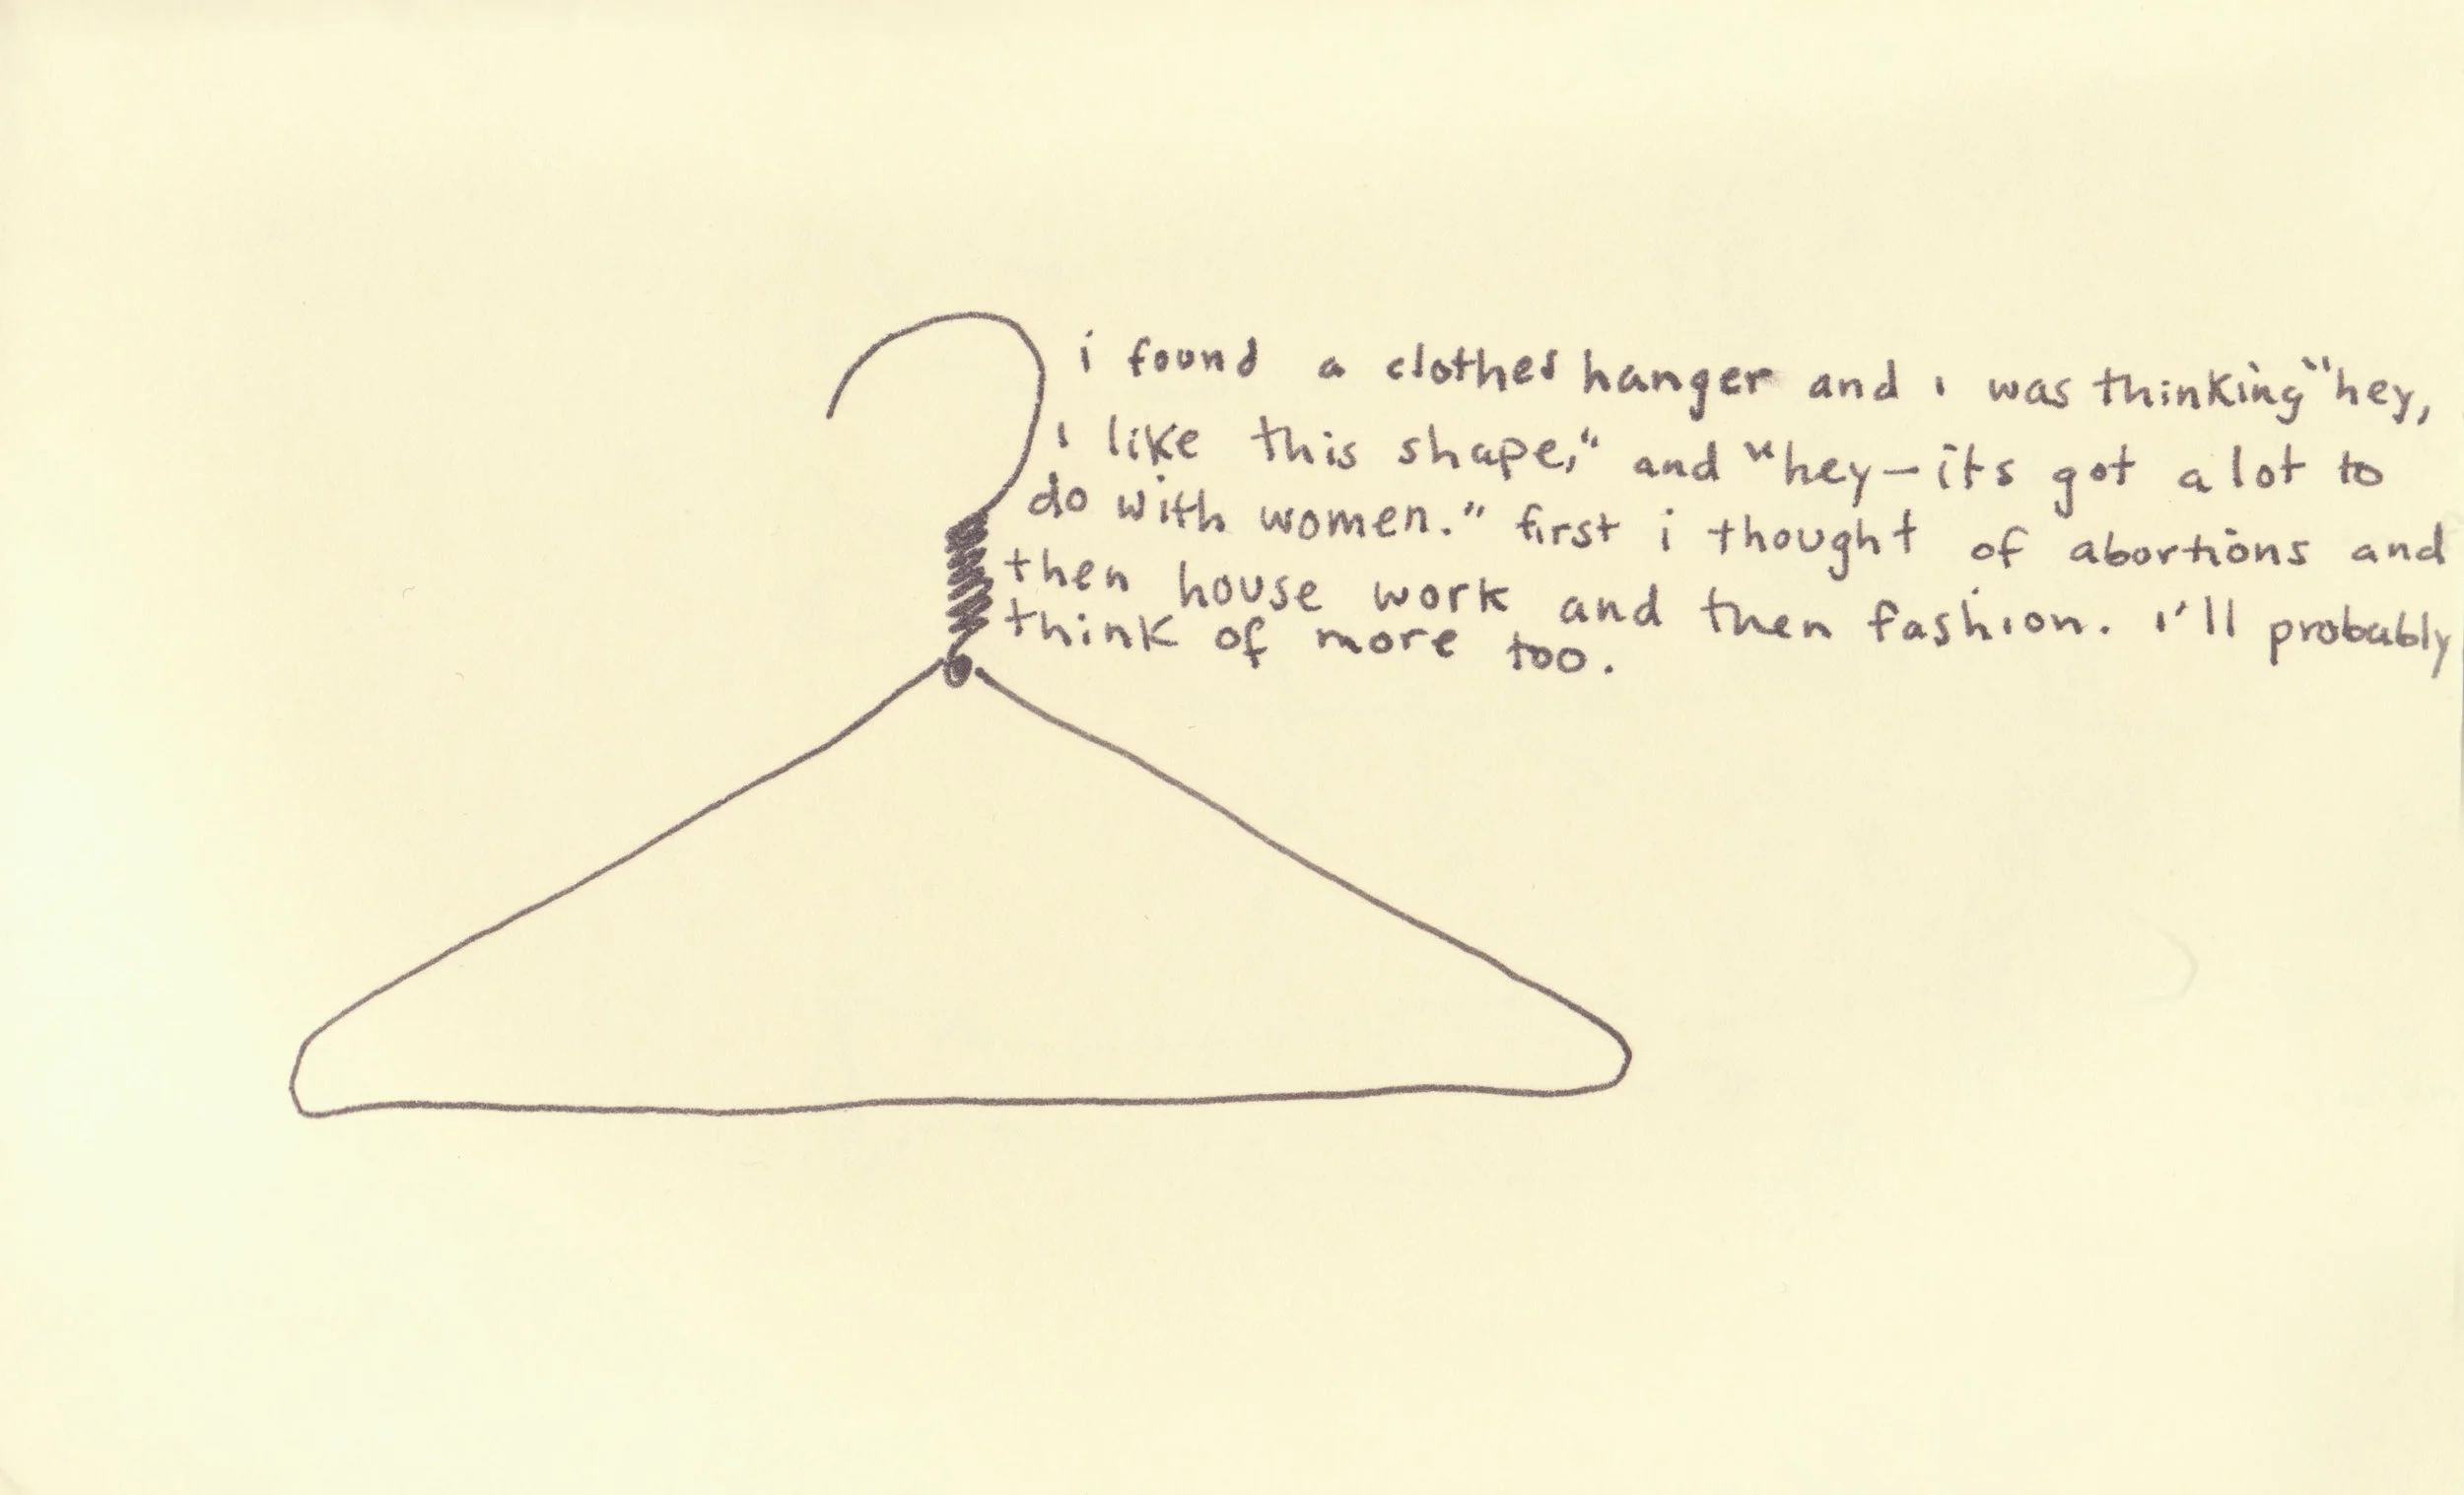 i found a clothes hanger and i was thinking "hey,
i like this shape," and "hey—its got a lot to
do with women." first i thought of abortions and
then house work and then fashion. i'll probably
think of more too.